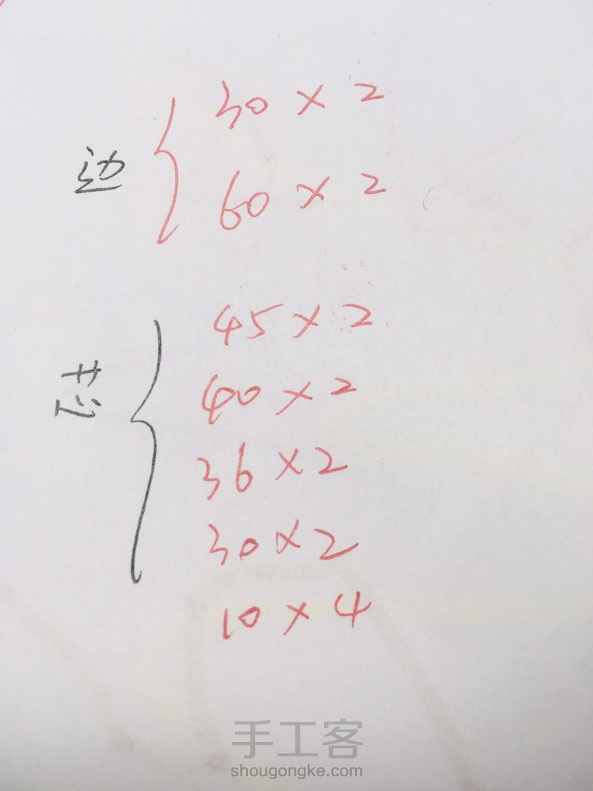 30 × 2
边
60 × 2
45 × 2
40 × 2
36 × 2
30 × 2
10 × 4
手工客
shougongke.com